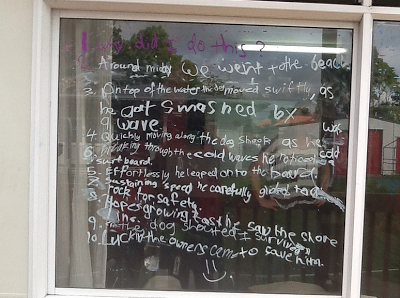 1 why did I do this?
2. Around midday we went to the beach
3. On top of the water the dog moved swiftly, as
he got smashed by
a wave
4 Quickly moving along the dog shreik as he
6. breaking through the cold waves he noticed
surf board.
5. Effortlessly he leaped onto the board.
7. sustaining speed he carefully glided to a
rock for safety.
8. Hopes growing as he saw the shore
9. the dog shouted I survived
10. Luckily the owners came to save him.